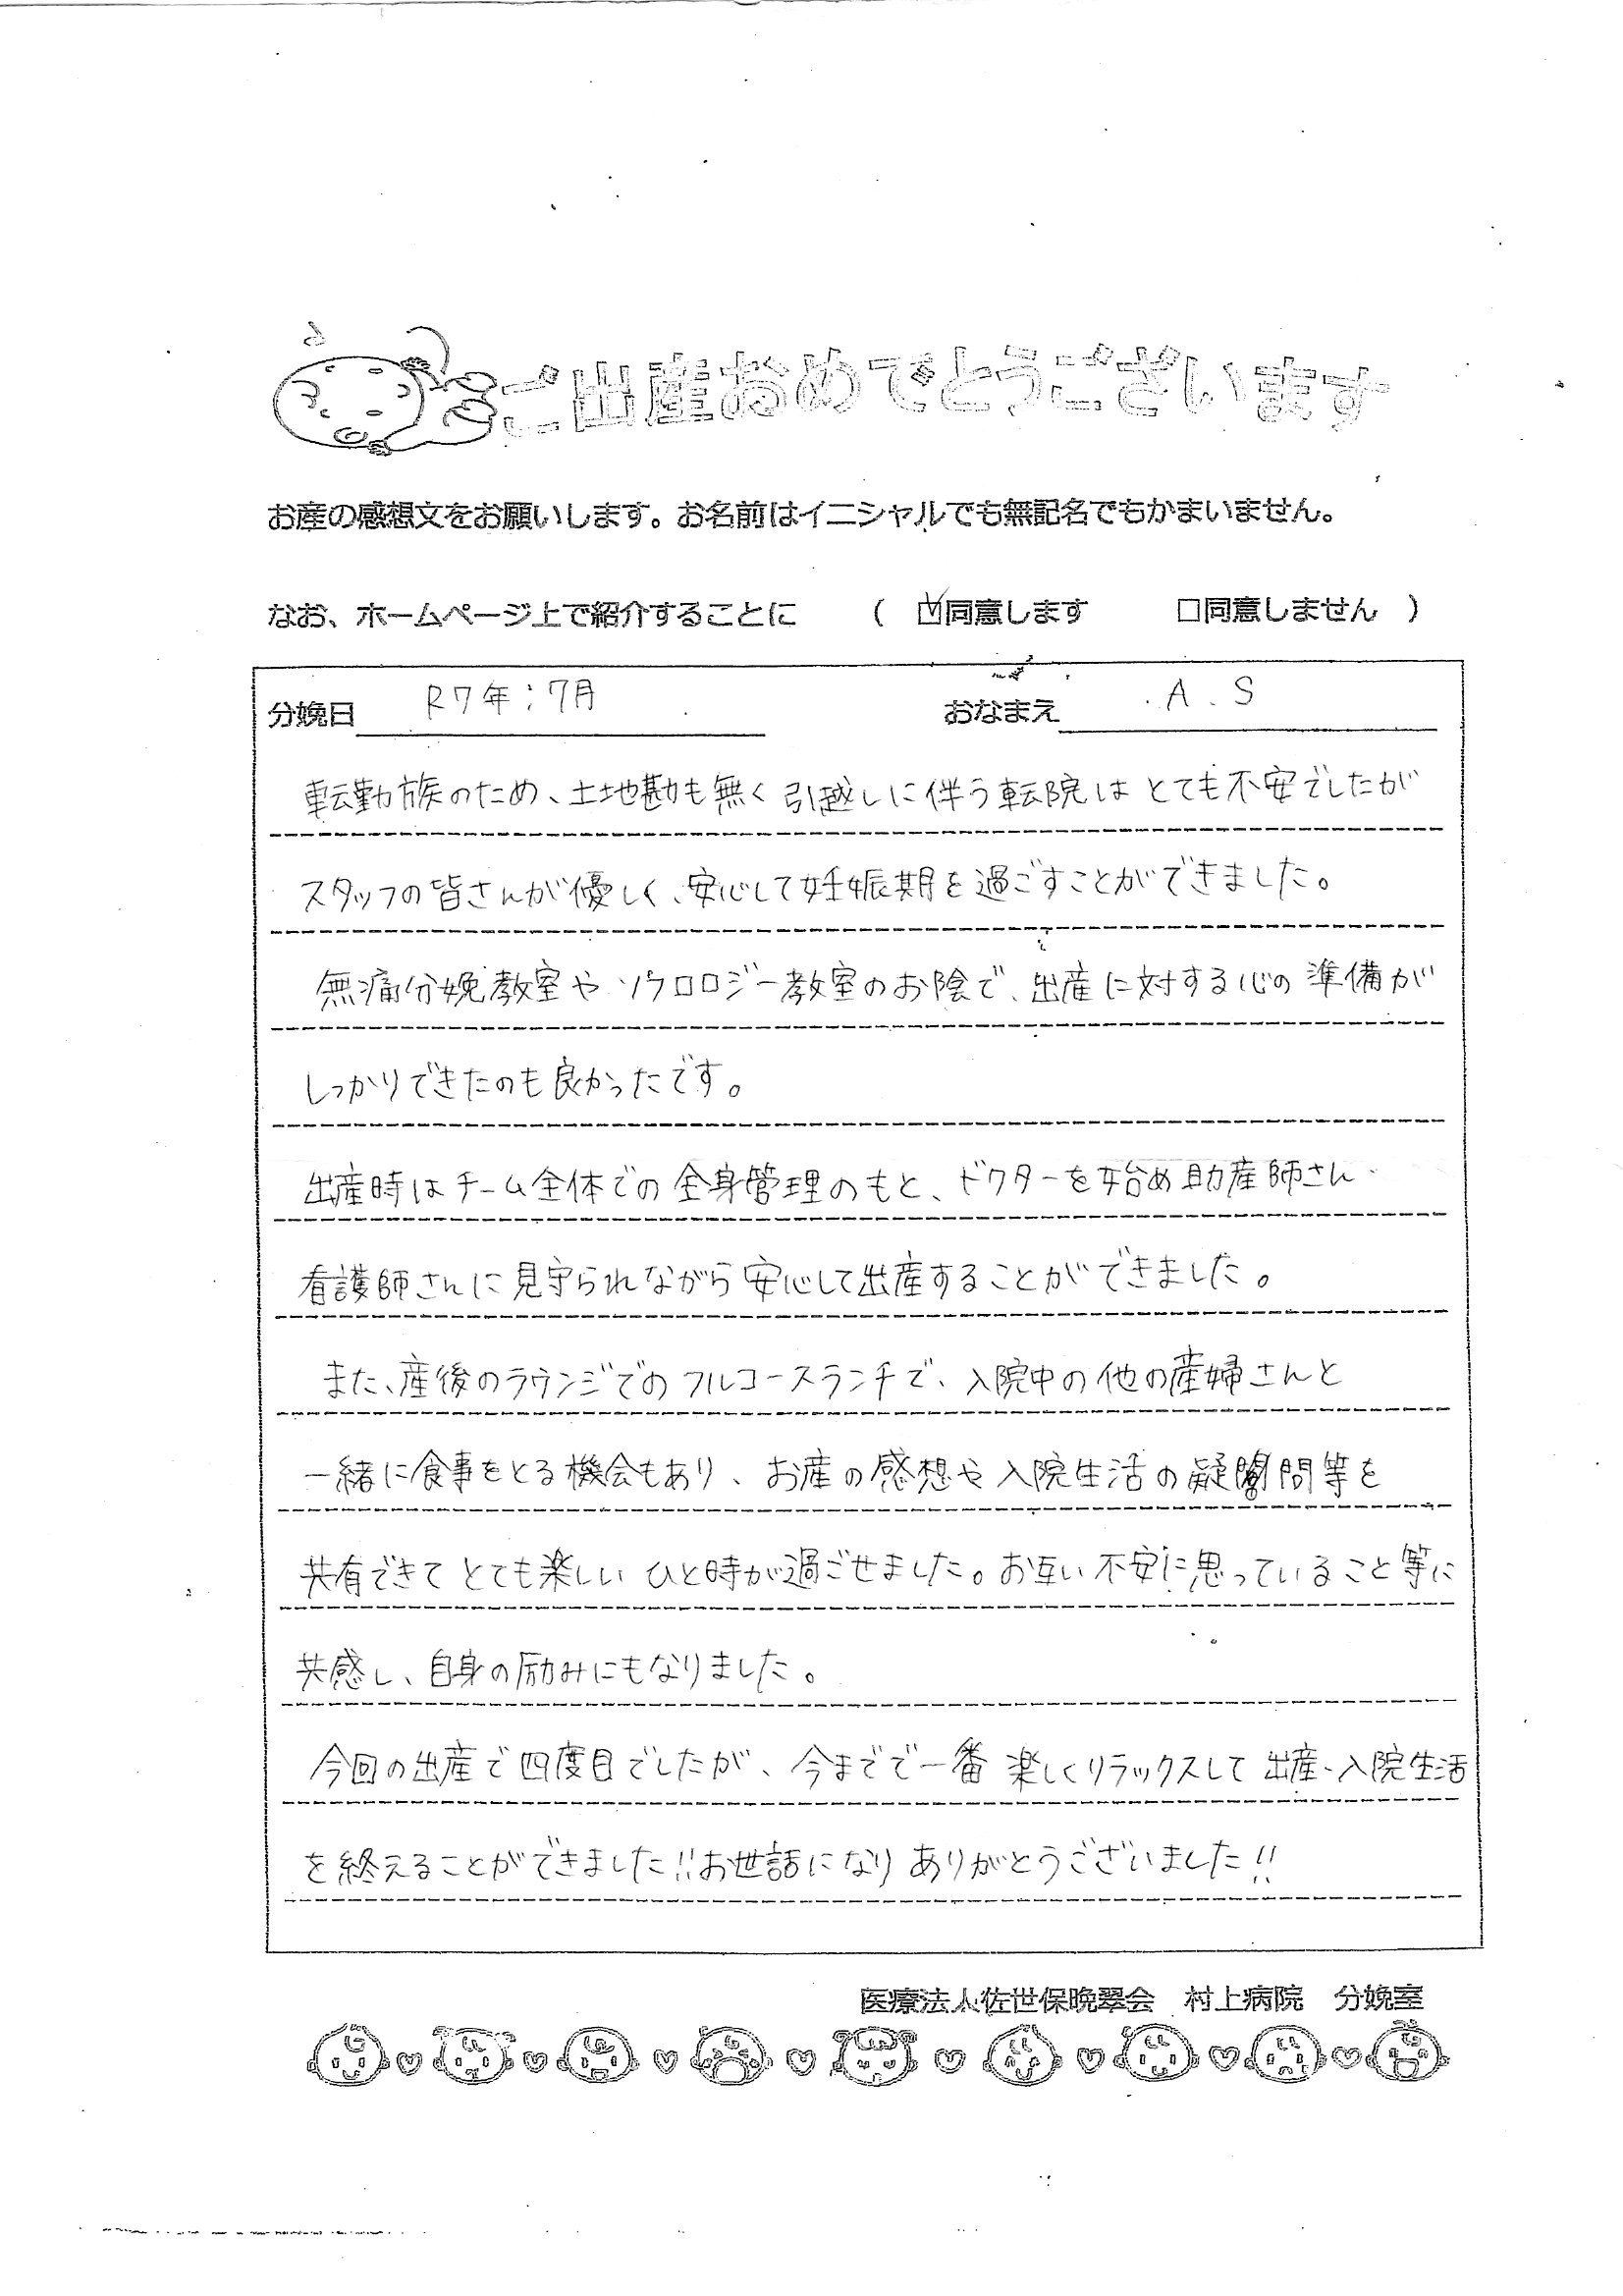 ご出産おめでとうございます
お産の感想文をお願いします。お名前はイニシャルでも無記名でもかまいません。
なお、ホームページ上で紹介することに ( ☑同意します □同意しません )
分娩日 R7年:7月 おなまえ A.S
転勤族のため、土地勘も無く引越しに伴う転院はとても不安でしたが
スタッフの皆さんが優しく、安心して妊娠期を過ごすことができました。
無痛分娩教室やソフロロジー教室のお陰で、出産に対する心の準備が
しっかりできたのも良かったです。
出産時はチーム全体での全身管理のもと、ドクターを始め助産師さん
看護師さんに見守られながら安心して出産することができました。
また、産後のラウンジでのフルコースランチで、入院中の他の産婦さんと
一緒に食事をとる機会もあり、お産の感想や入院生活の疑問等を
共有できてとても楽しいひと時が過ごせました。お互い不安に思っていること等に
共感し、自身の励みにもなりました。
今回の出産で四度目でしたが、今までで一番楽しくリラックスして出産、入院生活
を終えることができました!!お世話になりありがとうございました!!
医療法人佐世保晩翠会 村上病院 分娩室